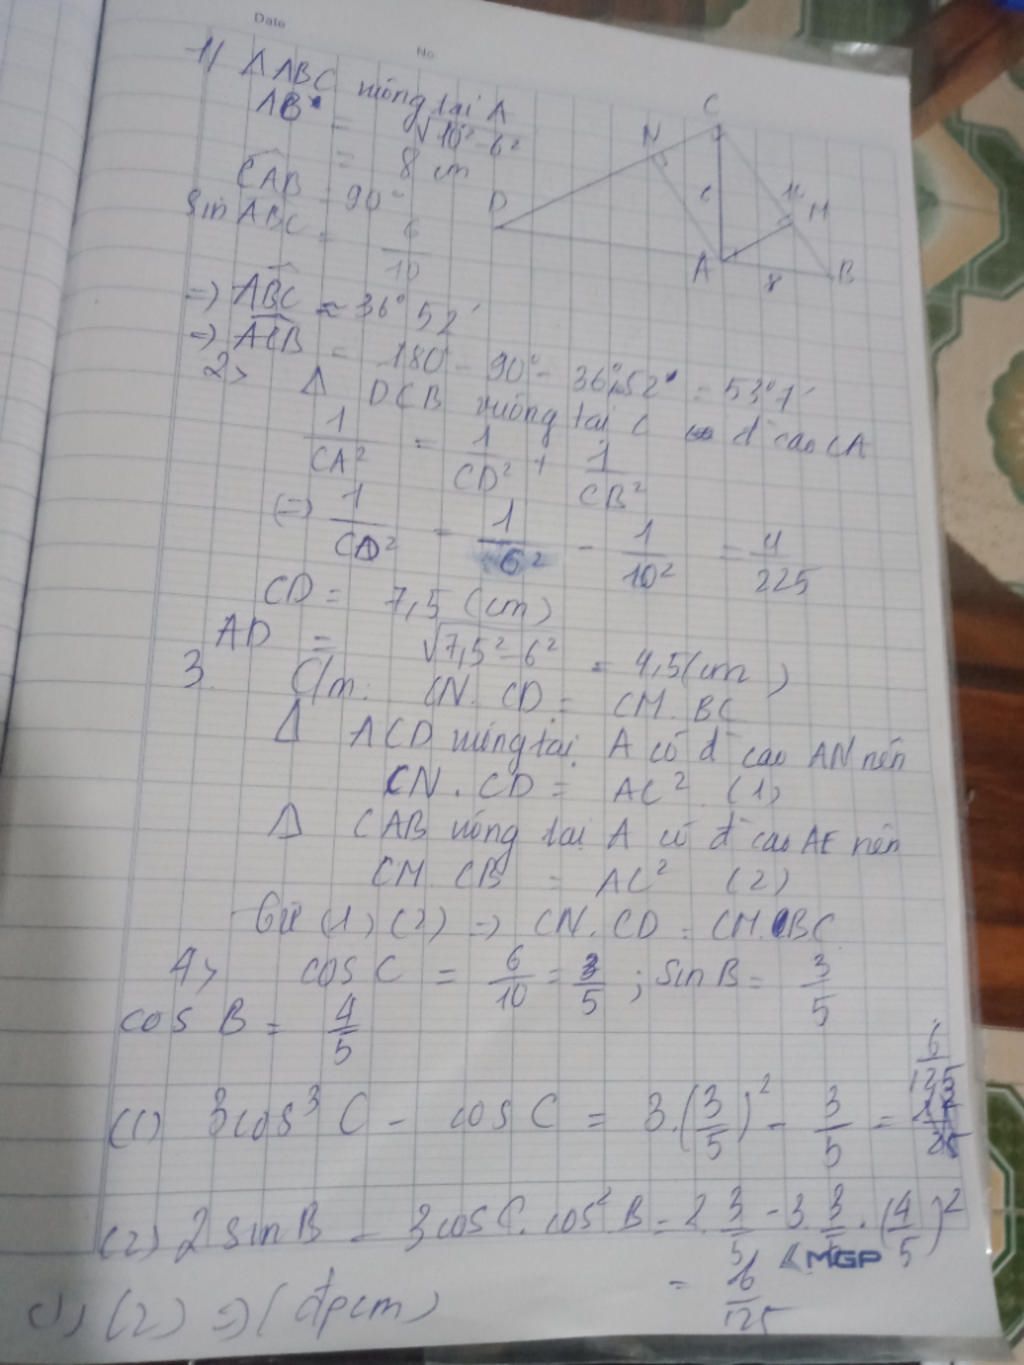 Date
No
1) Δ ABC vuông tại A
AB = √10² - 6²
= 8 cm
CAB = 90°
sin ABC = 6/10
=> ABC ≈ 36° 52'
=> ACB = 180 - 90° - 36°52' = 53°7'
C
N
D
6
10
M
A
8
B
2> Δ DCB vuông tại C đ cao CA
1/CA² = 1/CD² + 1/CB²
(=) 1/CD² = 1/6² - 1/10² = 4/225
CD = 7,5 (cm)
AD = √7,5² - 6² = 4,5 (cm)
3. C/m: CN. CD = CM. BC
Δ ACD vuông tại A có đ cao AN nên
CN. CD = AC² (1)
Δ CAB vuông tại A có đ cao AE nên
CM. CB = AC² (2)
Từ (1) (2) => CN. CD = CM. BC
4> cos C = 6/10 = 3/5 ; sin B = 3/5
cos B = 4/5
(1) 3cos³ C - cos C = 3.(3/5)² - 3/5 = 6/125
(2) 2 sin B - 3 cos C. cos² B = 2. 3/5 - 3. 3/5 . (4/5)²
MGP
= 6/125
(1) (2) => (đpcm)